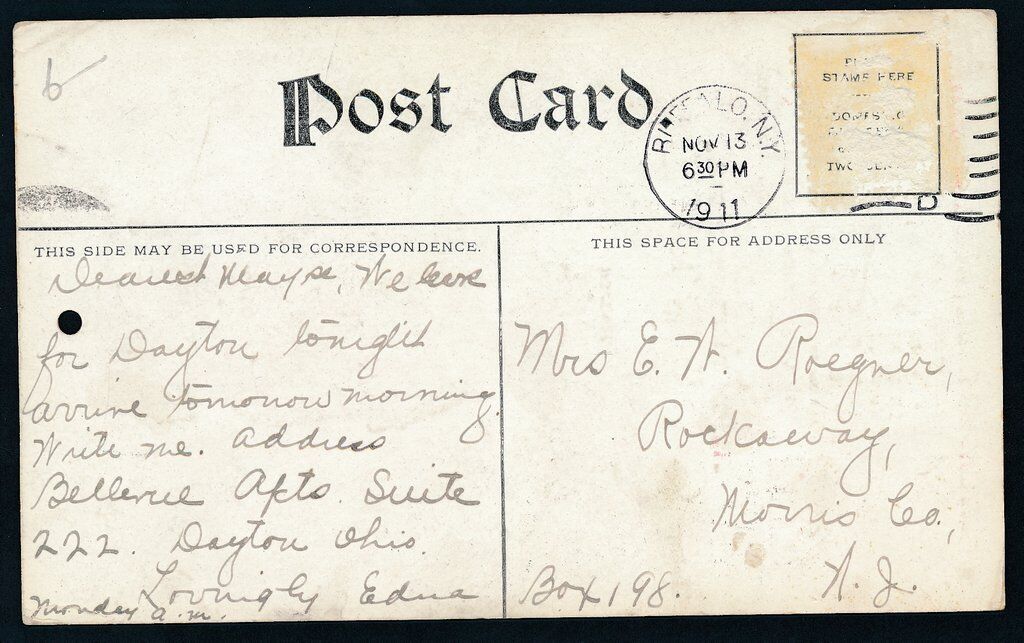 6
Post Card
BUFFALO, N.Y.
NOV 13
6 30 PM
1911
STAMP HERE
DOMESTIC
TWO CENTS
D
THIS SIDE MAY BE USED FOR CORRESPONDENCE.
Dearest Mayse, We leave
for Dayton tonight
arrive tomorrow morning.
Write me. address
Bellevue Apts. Suite
222. Dayton Ohio.
Lovingly Edna
Monday a.m.
THIS SPACE FOR ADDRESS ONLY
Mrs E. W. Roegner,
Rockaway,
Morris Co.,
Box 198. N. J.